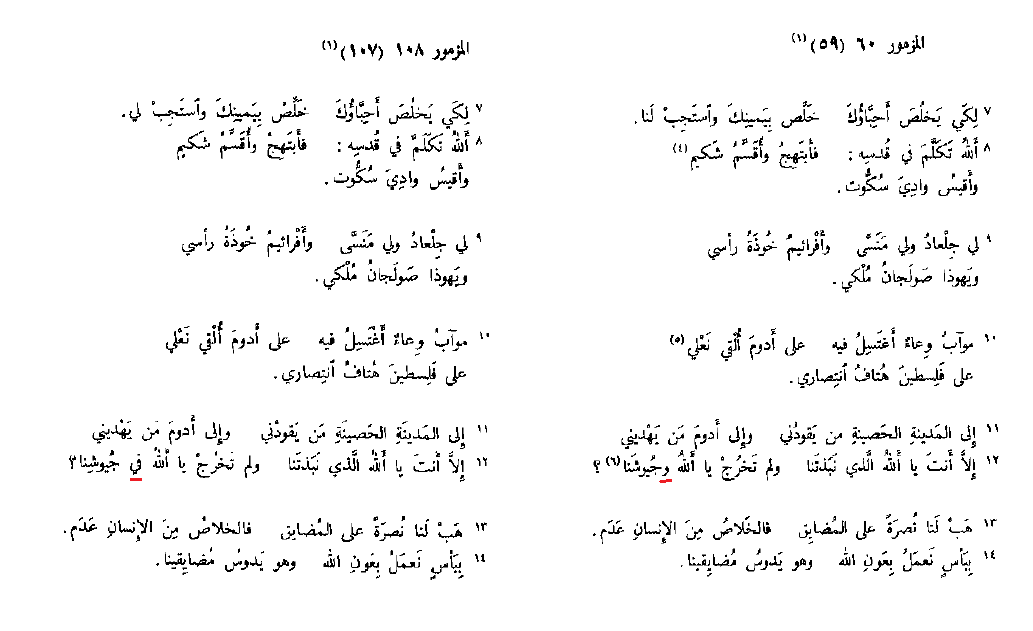 المزمور ٦٠ (٥٩) (١)
٧ لِكَي يَخلُصَ أَحِبَّاؤُكَ خَلِّص بِيَمينِكَ وٱستَجِبْ لَنا.
٨ أَللهُ تَكَلَّمَ في قُدسِه: فأَبتَهِجُ وأُقَسِّمُ شَكيم (٤)
وأَقيسُ وادِيَ سُكُّوت.
٩ لي جِلْعادُ ولي مَنَسَّى وأَفْرائيمُ خُوذَةُ رأسي
ويَهوذا صَولَجانُ مُلْكي.
١٠ موآبُ وِعاءٌ أَغتَسِلُ فيه على أَدومَ أُلْقي نَعْلي (٥)
على فَلِسطينَ هُتافُ ٱنتِصاري.
١١ إِلى المَدينةِ الحَصينةِ من يَقودُني وإِلى أَدومَ مَن يَهْديني
١٢ إِلاَّ أَنتَ يا أَللهُ الَّذي نَبَذتَنا ولم تَخرُجْ يا أَللهُ وجُيوشَنا (٦)؟
١٣ هَبْ لَنا نُصرَةً على المُضايِقِ فالخَلاصُ مِنَ الإِنسانِ عَدَم.
١٤ بِبَأسٍ نَعمَلُ بِعَونِ الله وهو يَدوسُ مُضايِقينا.
المزمور ١٠٨ (١٠٧) (١)
٧ لِكَي يَخلُصَ أَحِبَّاؤُكَ خَلِّصْ بِيَمينِكَ وٱستَجِبْ لي.
٨ أَللهُ تَكَلَّمَ في قُدسِه: فأَبتَهِجُ وأُقَسِّمُ شَكيم
وأَقيسُ وادِيَ سُكُّوت.
٩ لي جِلْعادُ ولي مَنَسَّى وأَفْرائيمُ خُوذَةُ رأسي
ويَهوذا صَولَجانُ مُلْكي.
١٠ موآبُ وِعاءٌ أَغْتَسِلُ فيه على أَدومَ أُلْقي نَعْلي
على فَلِسطينَ هُتافُ ٱنتِصاري.
١١ إِلى المَدينَةِ الحَصينَةِ مَن يَقودُني وإِلى أَدومَ مَن يَهْديني
١٢ إِلاَّ أَنتَ يا أَللهُ الَّذي نَبَذتَنا ولم تَخرُجْ يا أَللهُ في جُيوشِنا؟
١٣ هَبْ لَنا نُصرَةً على المُضايِق فالخلاصُ مِنَ الإِنسانِ عَدَم.
١٤ بِبَأسٍ نَعمَلُ بِعَونِ الله وهو يَدوسُ مُضايِقينا.